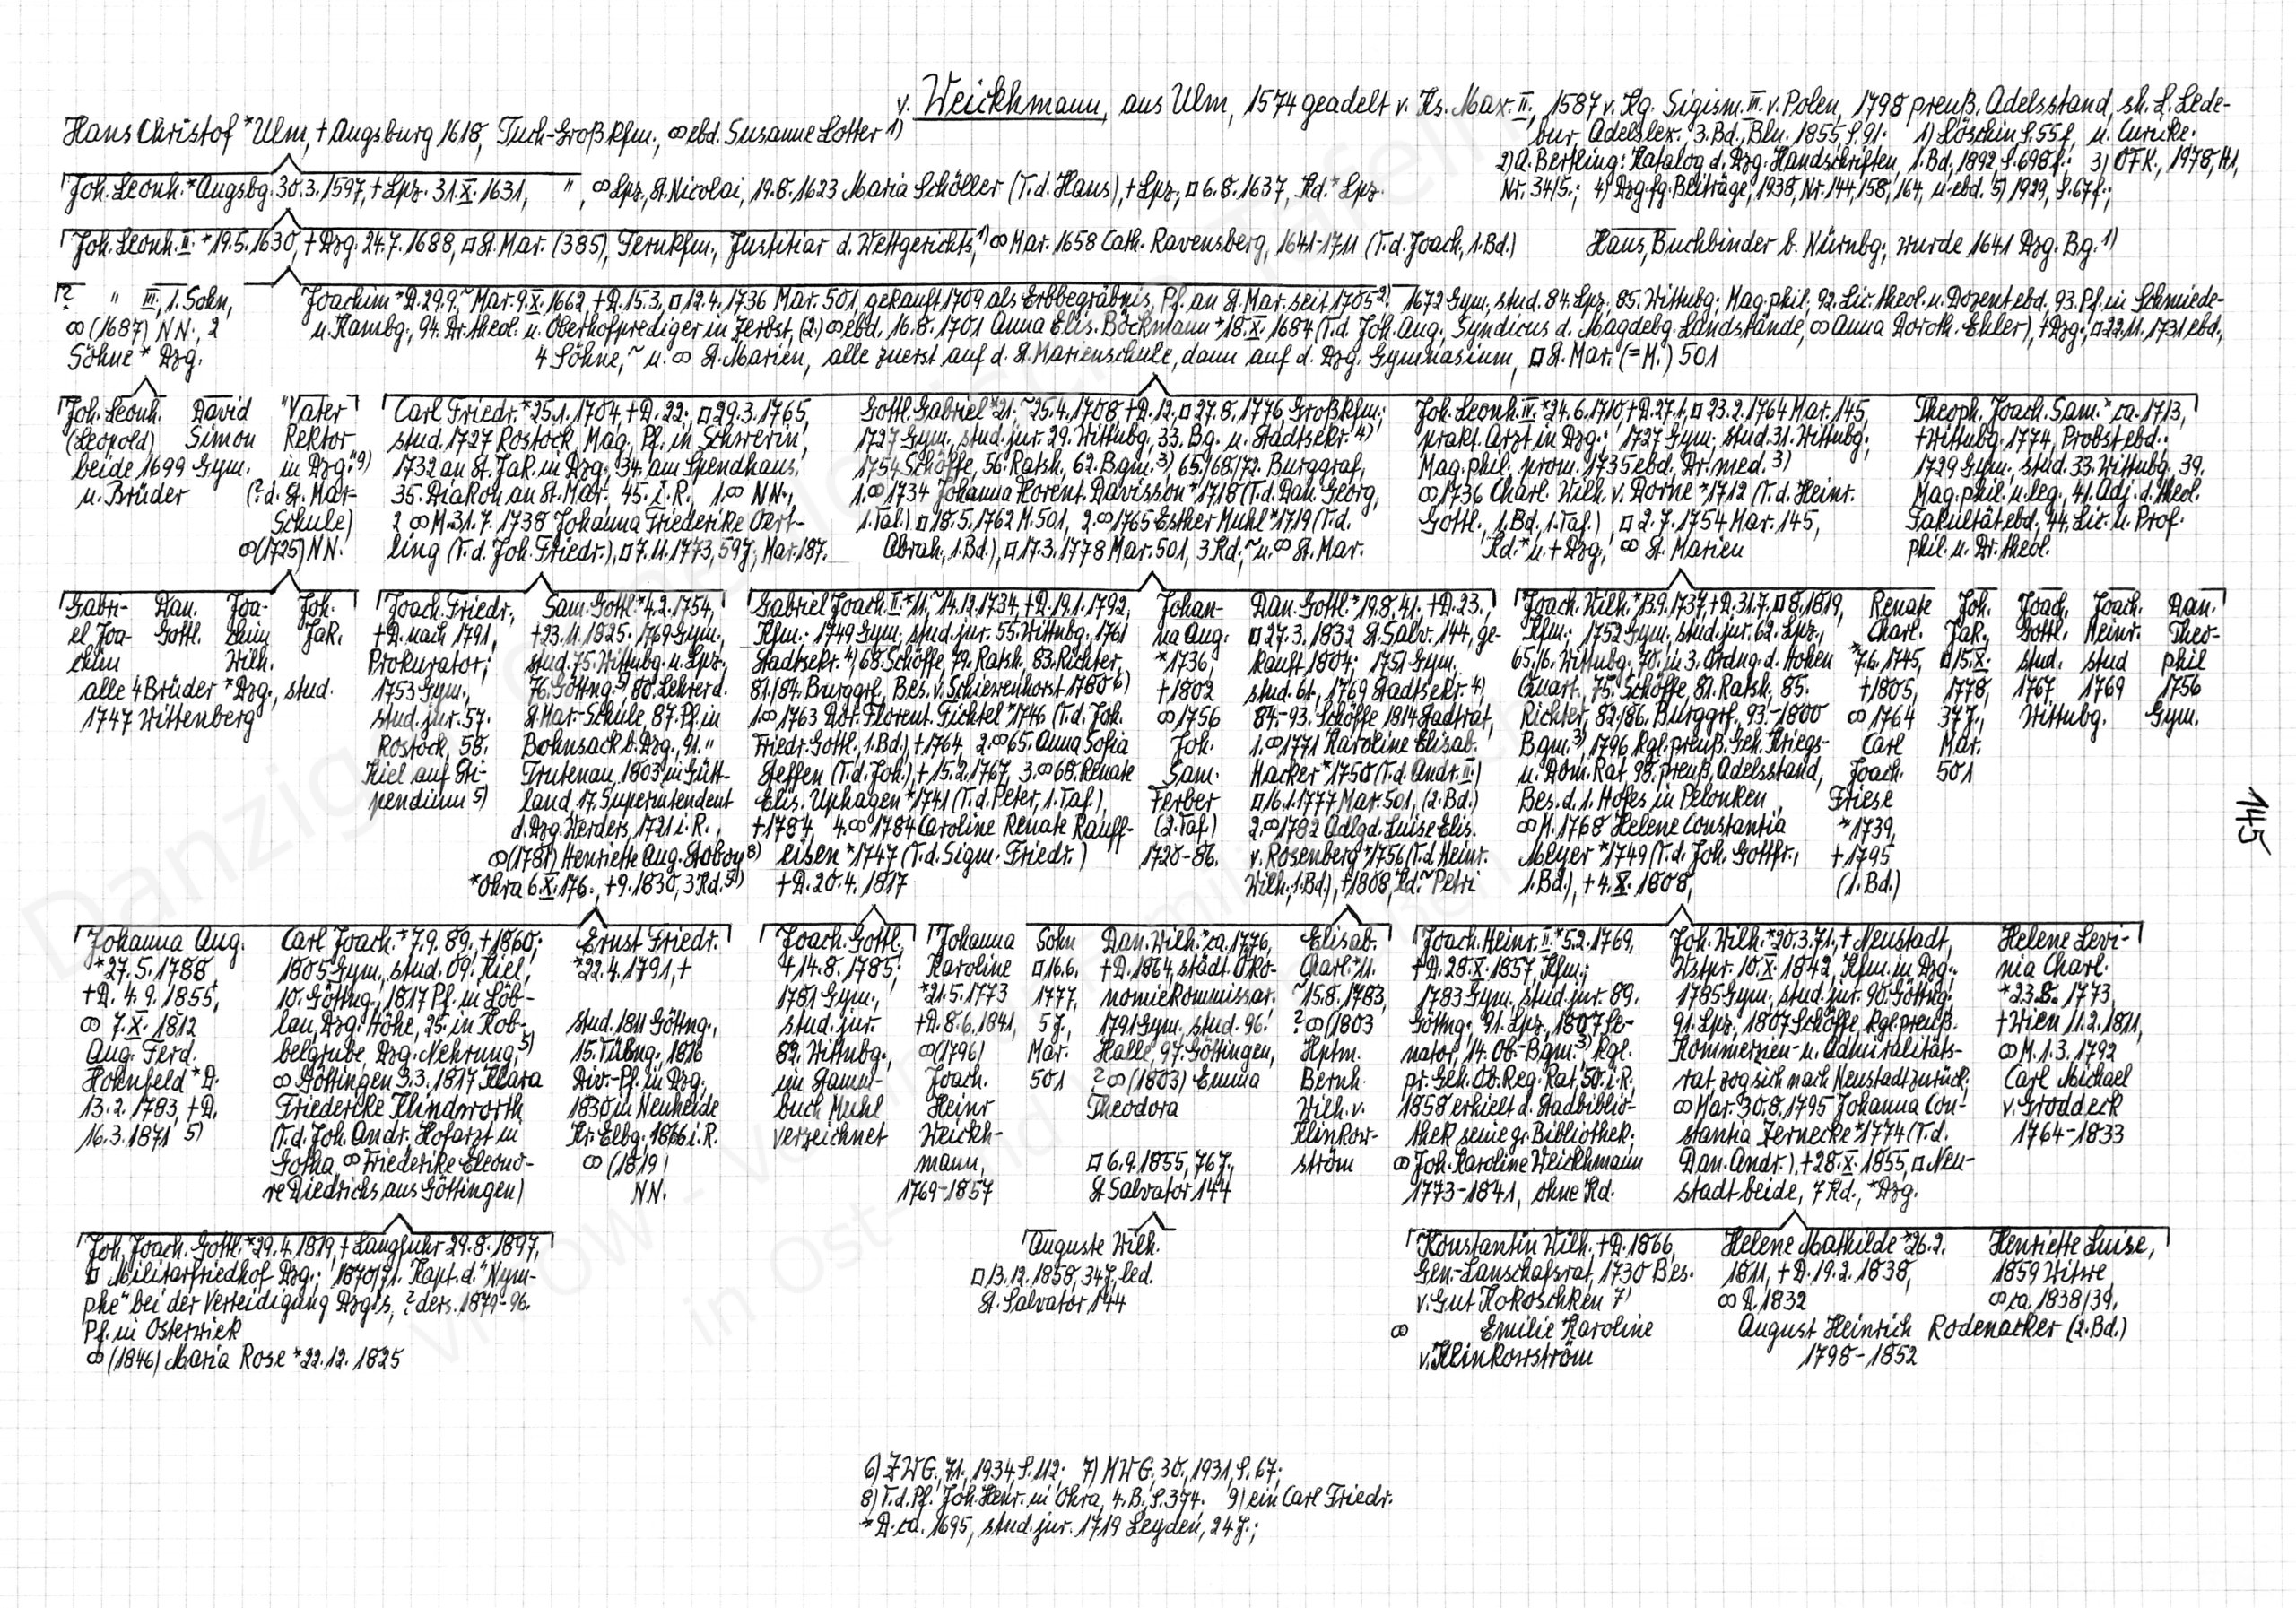 v. Weickhmann, aus Ulm, 1574 geadelt v. Ks. Max. II., 1587 v. Kg. Sigism. III. v. Polen, 1798 preuß. Adelsstand, sh. L. Lede-
bur, Adelslex. 3. Bd., Bln. 1855 S. 91. 1) Löschin S. 55f, u. Curicke.
2) A. Bertling: Katalog d. Dzg. Handschriften, 1. Bd., 1892 S. 698f. 3) OFK., 1978, H1,
Nr. 34/5.; 4) Dzg. fg. Beiträge, 1938, Nr. 144, 158, 164, u. ebd. 5) 1929, S. 67f.;
Hans Christof *Ulm, + Augsburg 1618, Tuch-Großkfm., ∞ ebd. Susanne Lotter 1)
Joh. Leonh. *Augsbg. 30.3.1597, + Lpz. 31.X.1631, " , ∞ Lpz., St. Nicolai, 19.8.1623 Maria Schöller (T.d. Hans), + Lpz., □ 6.8.1637, Kd. * Lpz.
Joh. Leonh. II. *19.5.1630, + Dzg. 24.7.1688, □ St. Mar. (385), Fernkfm., Justitiar d. Wettgerichts, 1) ∞ Mar. 1658 Cath. Ravensberg, 1641-1711 (T.d. Joach., 1. Bd.)
Hans, Buchbinder b. Nürnbg., wurde 1641 Dzg. Bg. 1)
? " III., 1. Sohn,
∞ (1687) NN., 2
Söhne * Dzg.
Joachim *D. 29.9. ~ Mar. 9.X.1662, + D. 15.3., □ 12.4.1736 Mar. 501, gekauft 1709 als Erbbegräbnis, Pf. an St. Mar. seit 1705 2). 1672 Gym., stud. 84. Lpz. 85. Wittnbg.; Mag. phil., 92. Lic. theol. u. Dozent ebd. 93. Pf. in Schmiede-
u. Kambg., 94. Dr. theol. u. Oberhofprediger in Zerbst, (2.) ∞ ebd. 16.8.1701 Anna Elis. Böckmann *18.X.1684 (T.d. Joh. Aug., Syndicus d. Magdebg. Landstände, ∞ Anna Doroth. Ehler), + Dzg., □ 22.11.1731 ebd.,
4 Söhne, ~ u. ∞ St. Marien, alle zuerst auf d. St. Marienschule, dann auf d. Dzg. Gymnasium, □ St. Mar. (=M.) 501
Joh. Leonh.
(Leopold)
beide 1699 Gym.
u. Brüder
David
Simon
"Vater
Rektor
in Dzg." 9)
(? d. St. Mar-
Schule)
∞ (1725) NN.
Carl Friedr. *25.1.1704, + D. 22., □ 29.3.1765,
stud. 1727 Rostock, Mag., Pf. in Schwerin,
1732 an St. Jak. in Dzg., 34. am Spendhaus,
35. Diakon an St. Mar. 45. i.R., 1. ∞ NN.,
2 ∞ M. 31.7.1738 Johanna Friederike Oert-
ling (T.d. Joh. Friedr.), □ 7.11.1773, 59J., Mar. 187.
Gottl. Gabriel *21. ~ 25.4.1708 + D. 12. □ 27.8.1776, Großkfm.;
1727 Gym., stud. jur. 29. Wittnbg., 33. Bg. u. Stadtsekr. 4)
1754 Schöffe, 56. Ratsh., 62. Bgm. 3) 65./68./72. Burggraf,
1. ∞ 1734 Johanna Florent. Davisson *1718 (T.d. Dan. Georg,
1. Taf.) □ 18.5.1762 M. 501, 2. ∞ 1765 Esther Muhl *1719 (T.d.
Abrah., 1. Bd.), □ 17.3.1778 Mar. 501, 3 Kd., ~ u. ∞ St. Mar.
Joh. Leonh. IV. *24.6.1710, + D. 27.1., □ 23.2.1764 Mar. 145,
prakt. Arzt in Dzg.; 1727 Gym., stud. 31. Wittnbg.,
Mag. phil. prom. 1735 ebd. Dr. med. 3)
∞ 1736 Charl. Wilh. v. Dorne *1712 (T.d. Heinr.
Gottl., 1. Bd., 1. Taf.), □ 2.7.1754 Mar. 145,
Kd. * u. + Dzg., ∞ St. Marien
Theoph. Joach. Sam. * ca. 1713,
+ Wittnbg. 1774, Probst ebd.;
1729 Gym., stud. 33. Wittnbg. 39.
Mag. phil. u. leg., 41. Adj. d. theol.
Fakultät ebd., 44. Lic. u. Prof.
phil. u. Dr. theol.
Gabri-
el Joa-
chim
Dan.
Gottl.
Joa-
chim
Wilh.
Joh.
Jak.
alle 4 Brüder * Dzg., stud.
1747 Wittenberg
Joach. Friedr.,
+ D. nach 1791,
Prokurator;
1753 Gym.,
stud. jur. 57.
Rostock, 58.
Kiel auf Sti-
pendium 5)
Sam. Gottl. *4.2.1754,
+ 23.11.1825. 1769 Gym.,
stud. 75. Wittnbg. u. Lpz.,
76. Göttng. 5) 80. Lehrer d.
St. Mar.-Schule, 87. Pf. in
Bohnsack b. Dzg., 91. "
Trutenau, 1803 in Gütt-
land, 17. Superintendent
d. Dzg. Werders, 1721 i.R.,
∞ (1781) Henriette Aug. Stoboy 8)
*Ohra 6.X.176., + 9.1830, 3 Kd. 5)
Gabriel Joach. II. *11. ~ 14.12.1734, + D. 19.1.1792,
Kfm.; 1749 Gym., stud. jur. 55. Wittnbg., 1761
Stadtsekr. 4) 68. Schöffe, 79. Ratsh., 83. Richter,
81./84. Burggrf., Bes. v. Schiewenhorst 1780 6)
1. ∞ 1763 Dor. Florent. Fichtel *1746 (T.d. Joh.
Friedr. Gottl., 1. Bd.), + 1764, 2. ∞ 65. Anna Sofia
Steffen (T.d. Joh.), + 15.2.1767, 3. ∞ 68. Renate
Elis. Uphagen *1741 (T.d. Peter, 1. Taf.),
+ 1784, 4. ∞ 1784 Caroline Renate Rauff-
eisen *1747 (T.d. Sigm. Friedr.)
+ D. 20.4.1817
Johan-
na Aug.
*1736,
+ 1802
∞ 1756
Joh.
Sam.
Ferber
(2. Taf.)
1720-86.
Dan. Gottl. *19.8.41. + D. 23.,
□ 27.3.1832 St. Salv. 144, ge-
kauft 1804; 1751 Gym.
stud. 61., 1769 Stadtsekr. 4),
84.-93. Schöffe 1814 Stadtrat,
1. ∞ 1771 Karoline Elisab.
Hacker *1750 (T.d. Andr. II.)
□ 16.1.1777 Mar. 501, (2. Bd.)
2. ∞ 1782 Adlgd. Luise Elis.
v. Rosenberg *1756 (T.d. Heinr.
Wilh., 1. Bd.), + 1808, Kd. ~ Petri
Joach. Wilh. *13.9.1737, + D. 31.7., □ 8.1819,
Kfm.; 1752 Gym., stud. jur. 62. Lpz.,
65./6. Wittnbg. 70. in 3. Ordng. d. Hohen
Quart., 75. Schöffe, 81. Ratsh., 85.
Richter, 82./86. Burggrf., 93.-1800
Bgm. 3), 1796 Kgl. preuß. Geh. Kriegs-
u. Dom. Rat, 98. preuß. Adelsstand,
Bes. d. 1. Hofes in Pelonken,
∞ M. 1768 Helene Constantia
Meyer *1749 (T.d. Joh. Gottfr.,
1. Bd.), + 4.X.1808,
Renate
Charl.
*7.6.1745,
+ 1805,
∞ 1764
Carl
Joach.
Friese
*1739,
+ 1795
(1. Bd.)
Joh.
Jak.,
□ 15.X.
1778,
37J.,
Mar.
501
Joach.
Gottl.
stud.
1767
Wittnbg.
Joach.
Heinr.
stud
1769
Dan.
Theo-
phil
1756
Gym.
145
Johanna Aug.
*27.5.1788,
+ D. 4.9.1855,
∞ 7.X.1812
Aug. Ferd.
Hohnfeld *D.
13.2.1783, + D.
16.3.1871 5)
Carl Joach. *7.9.89, + 1860;
1805 Gym., stud. 09. Kiel,
10. Göttng., 1817 Pf. in Löb-
lau, Dzg. Höhe, 25. in Kob-
belgrube, Dzg. Nehrung, 5)
∞ Göttingen 3.3.1817 Klara
Friedericke Klindworth
(T.d. Joh. Andr., Hofarzt in
Gotha, ∞ Friederike Eleono-
re Diedrichs aus Göttingen)
Ernst Friedr.
*22.4.1791, +
stud. 1811 Göttng.,
15. Tübng., 1816
Div.-Pf. in Dzg.,
1830 in Neuheide
Kr. Elbg., 1866 i.R.
∞ (1819)
NN.
Joach. Gottl.
+ 14.8.1785;
1781 Gym.,
stud. jur.
82. Wittnbg.,
im Stamm-
buch Muhl
verzeichnet
Johanna
Karoline
*21.5.1773
+ D. 8.6.1841,
∞ (1796)
Joach.
Heinr
Weickh-
mann,
1769-1857
Sohn
□ 16.6.
1777,
5J.,
Mar.
501
Dan. Wilh. * ca. 1776,
+ D. 1864, städt. Öko-
nomiekommissar.
1791 Gym., stud. 96.
Halle, 97. Göttingen,
? ∞ (1803) Emma
Theodora
□ 6.9.1855, 76J.,
St. Salvator 144
Elisab.
Charl. *11.
~ 15.8.1783,
? ∞ (1803
Hptm.
Bernh.
Wilh. v.
Klinkow-
ström
Joach. Heinr. II. *5.2.1769,
+ D. 28.X.1857, Kfm.;
1783 Gym., stud. jur. 89.
Göttng., 91. Lpz., 1807 Se-
nator, 14. Ob.-Bgm. 3) Kgl.
pr. Geh. Ob. Reg. Rat, 50. i.R.,
1858 erhielt d. Stadbiblio-
thek seine gr. Bibliothek;
∞ Joh. Karoline Weickhmann
1773-1841, ohne Kd.
Joh. Wilh. *20.3.71, + Neustadt,
Wstpr. 10.X.1842, Kfm. in Dzg.;
1785 Gym., stud. jur. 90. Göttng.,
91. Lpz., 1807 Schöffe, Kgl. preuß.
Kommerzien- u. Admiralitäts-
rat, zog sich nach Neustadt zurück;
∞ Mar. 30.8.1795 Johanna Con-
stantia Zernecke *1774 (T.d.
Dan. Andr.), + 28.X.1855, □ Neu-
stadt beide, 7 Kd., *Dzg.
Helene Levi-
nia Charl.
*23.8.1773,
+ Wien 11.2.1811,
∞ M. 1.3.1792
Carl Michael
v. Groddeck
1764-1833
Joh. Joach. Gottl. *29.4.1819, + Langfuhr 29.8.1897,
□ Militärfriedhof Dzg.; 1870/71. Kapt. d. "Nym-
phe" bei der Verteidigung Dzg's, ? ders. 1879-96.
Pf. in Osterwiek
∞ (1846) Maria Rose *22.12.1825
Auguste Wilh.
□ 13.12.1858, 34J., led.
St. Salvator 144
Konstantin Wilh. + D. 1866,
Gen.-Lanschafsrat, 1730 Bes.
v. Gut Kokoschken 7)
∞ Emilie Karoline
v. Klinkowström
Helene Mathilde *26.2.
1811, + D. 19.2.1838,
∞ D. 1832
Henriette Luise,
1859 Witwe
∞ ca. 1838/39.
August Heinrich Rodenacker (2. Bd.)
1798-1852
6) ZWG., 71., 1934, S. 112; 7) MWG. 30., 1931, S. 67;
8) T.d. Pf. Joh. Henr. in Ohra, 4. B., S. 374. 9) ein Carl Friedr.
*D. ca. 1695, stud. jur. 1719 Leyden, 24J.;